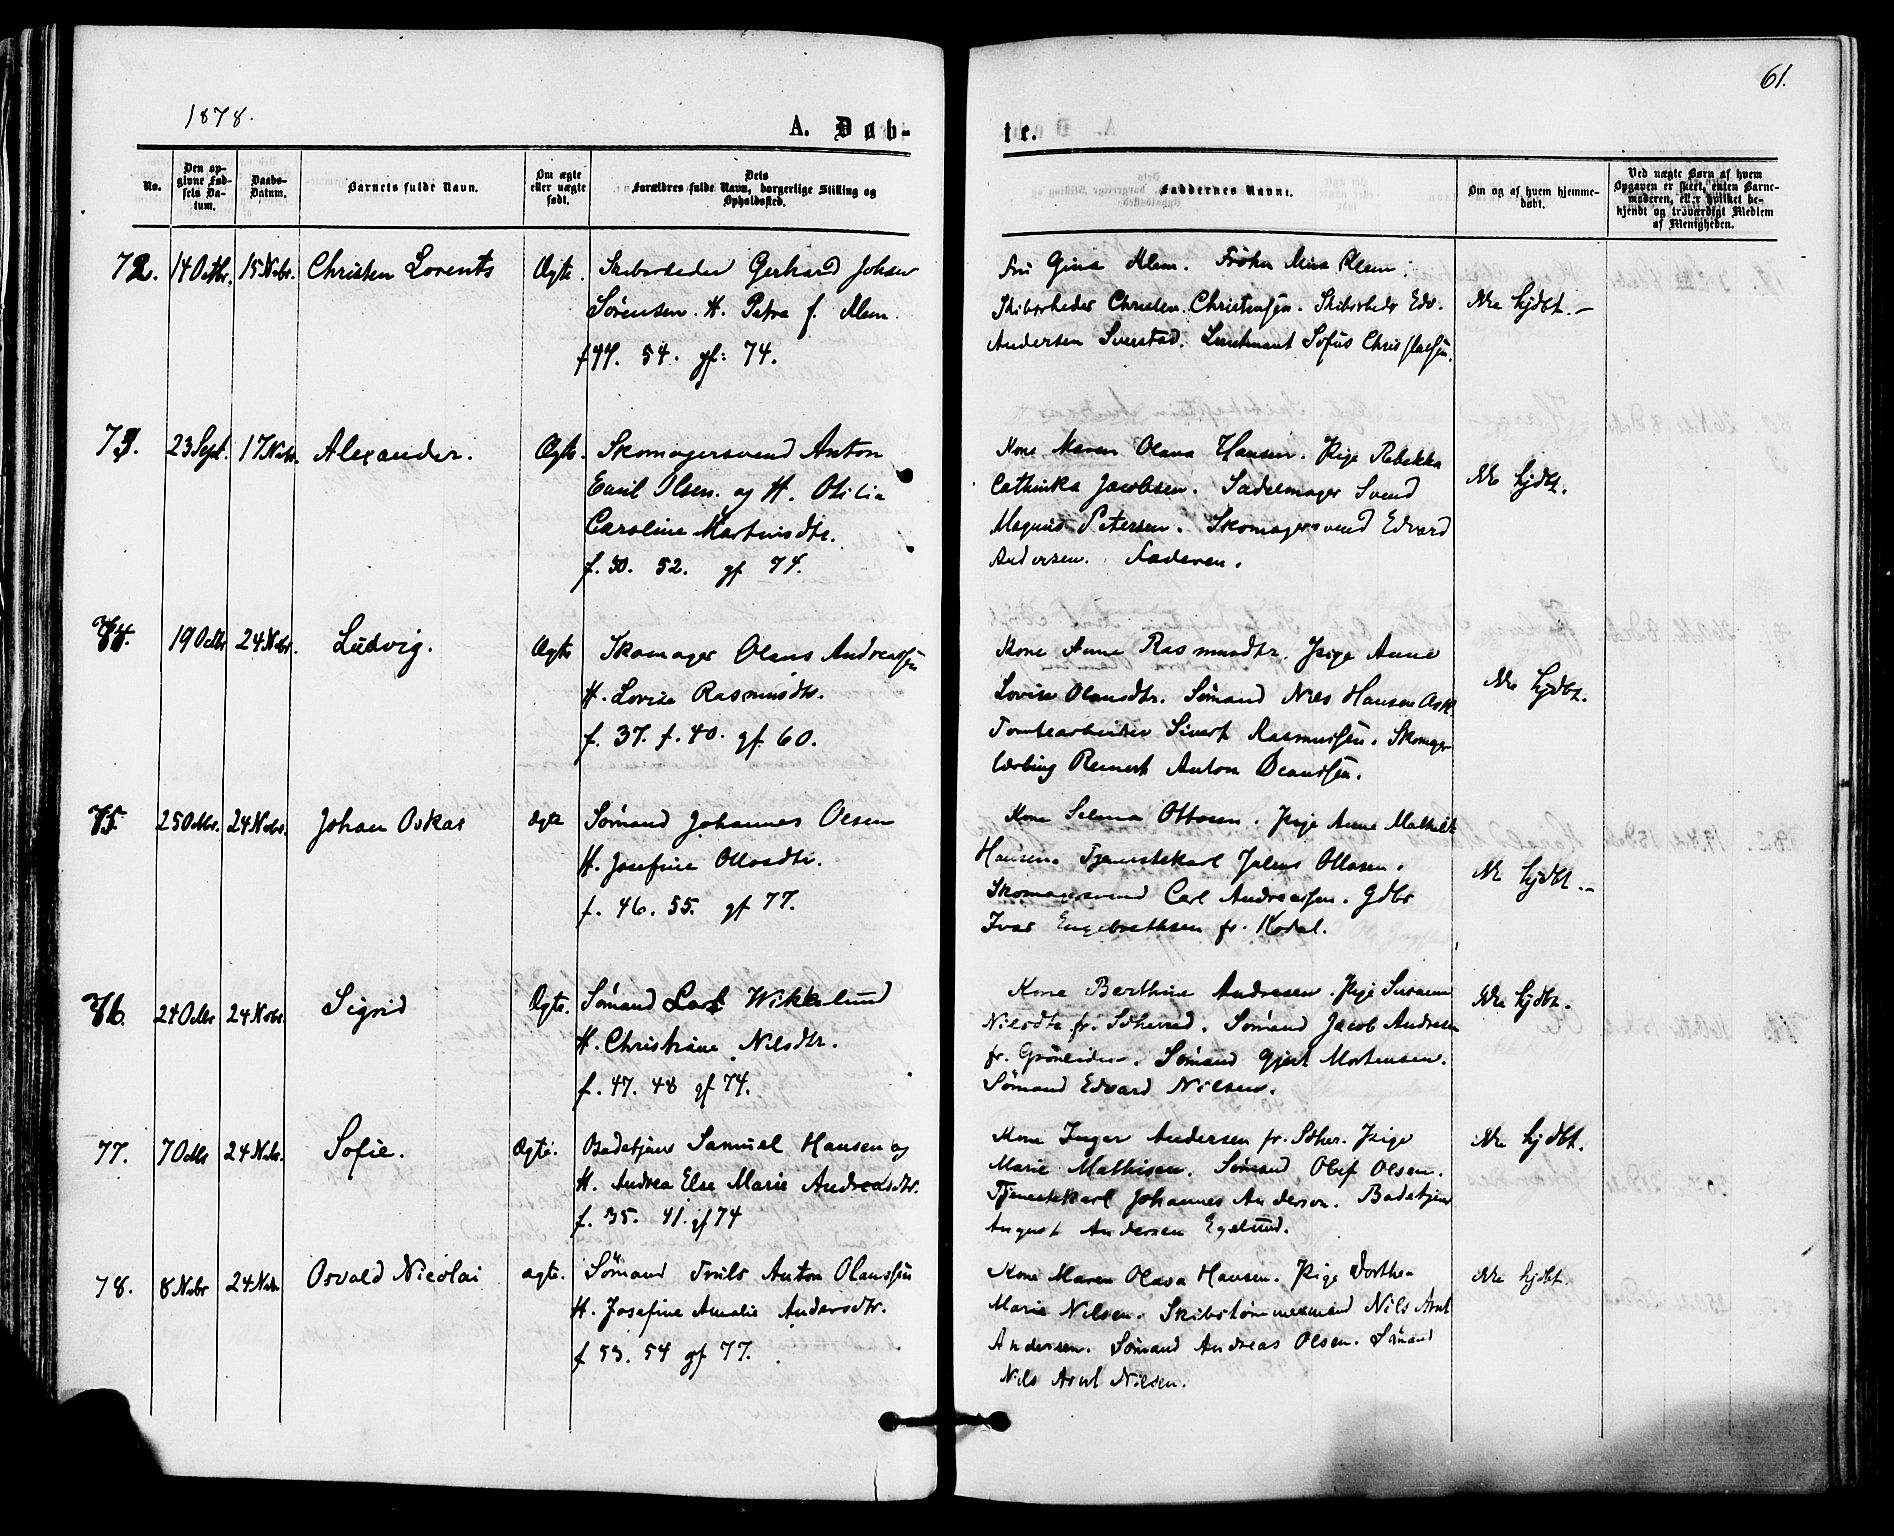 61.
1878.
A. Døb-
te.
No.
Den op-
givne Fød-
sels Da-
tum.
Daabs-
Datum.
Barnets fulde Navn.
Om ægte
eller uægte
født.
Dets
Forældres fulde Navn, borgerlige Stilling og
Opholdssted.
Faddernes Navne.
Om og af hvem hjemme-
døbt.
Ved uægte Børn af hvem
Opgaven er skeet, enten Barne-
moderen, eller hvilket be-
kjendt og troværdigt Medlem
af Menigheden.
72. 14 Octbr. 15 Nvbr. Christen Lorents Ægte. Skibsrheder Gerhard Johan
Sørensen. H. Petra f. Klem.
f 44. 54. gf: 74.
Fru Gina Klem. Frøken Mina Klem.
Skibsrheder Christen Christensen. Skibsrheder Edv.
Andersen Sverstad. Lieutnant Sofus Christensen.
Ikke hjdbt.
73. 23 Sept. 17 Nvbr. Alexander. Ægte. Skomagersvend Anton
Emil Olsen. og H. Otilia
Caroline Martinsdtr.
f. 50. 52. gf 74.
Kone Maren Olava Hansen. Pige Rebekka
Cathinka Jacobsen. Sadelmager Svend
Magnus Petersen. Skomagersvend Edvard
Andersen. Faderen.
Ikke hjdbt.
74. 19 Octbr 24 Nvbr. Ludvig. Ægte Skomager Olaus Andreassen
H. Lovise Rasmusdtr.
f. 37. f. 40. gf. 60.
Kone Anne Rasmusdtr. Pige Anne
Lovise Olausdtr. Sømand Nils Hansen Ask.
Tomtearbeider Sivert Rasmussen. Skomager
lærling Reinert Anton Olaussen.
Ikke hjdbt.
75. 25 Octbr. 24 Nvbr. Johan Oskar ægte Sømand Johannes Olsen
H. Josefine Ottosdtr.
f. 46. 55. gf 77.
Kone Selma Ottosen. Pige Anne Mathilde
Hansen. Tjenestekarl Julius Ottosen.
Skomagersvend Carl Andreassen. Gdbr
Ivar Engebrethsen fr. Kodal.
Ikke hjdbt.
76. 24 Octbr 24 Nvbr. Sigrid Ægte. Sømand Carl Wikkelund
H. Christiane Nilsdtr.
f. 47. 48 gf 74.
Kone Berthine Andresen. Pige Susanne
Nilsdtr fr. Stherred. Sømand Jacob Andresen
fr. Grønliden. Sømand Gjert Mortensen.
Sømand Edvard Nilsen.
Ikke hjdbt.
77. 7 Octbr 24 Nvbr. Sofie. Ægte. Badetjener Samuel Hansen og
H. Andrea Else Marie Andreasdtr.
f. 35. 41. gf 74
Kone Inger Andersen fr. Sther. Pige
Marie Mathisen. Sømand Olif Olsen.
Tjenestekarl Johannes Anderson. Badetjener
August Andersen Egelund.
Ikke hjdbt.
78. 8 Nvbr 24 Nvbr. Osvald Nicolai ægte. Sømand Truls Anton Olaussen
H. Josefine Amalie Andersdtr.
f 53. 54 gf 77.
Kone Maren Olava Hansen. Pige Dorthe
Marie Nilsen. Skibstømmermand Nils Arnt
Andersen. Sømand Andreas Olsen. Sømand
Nils Arnt Nilsen.
Ikke hjdbt.